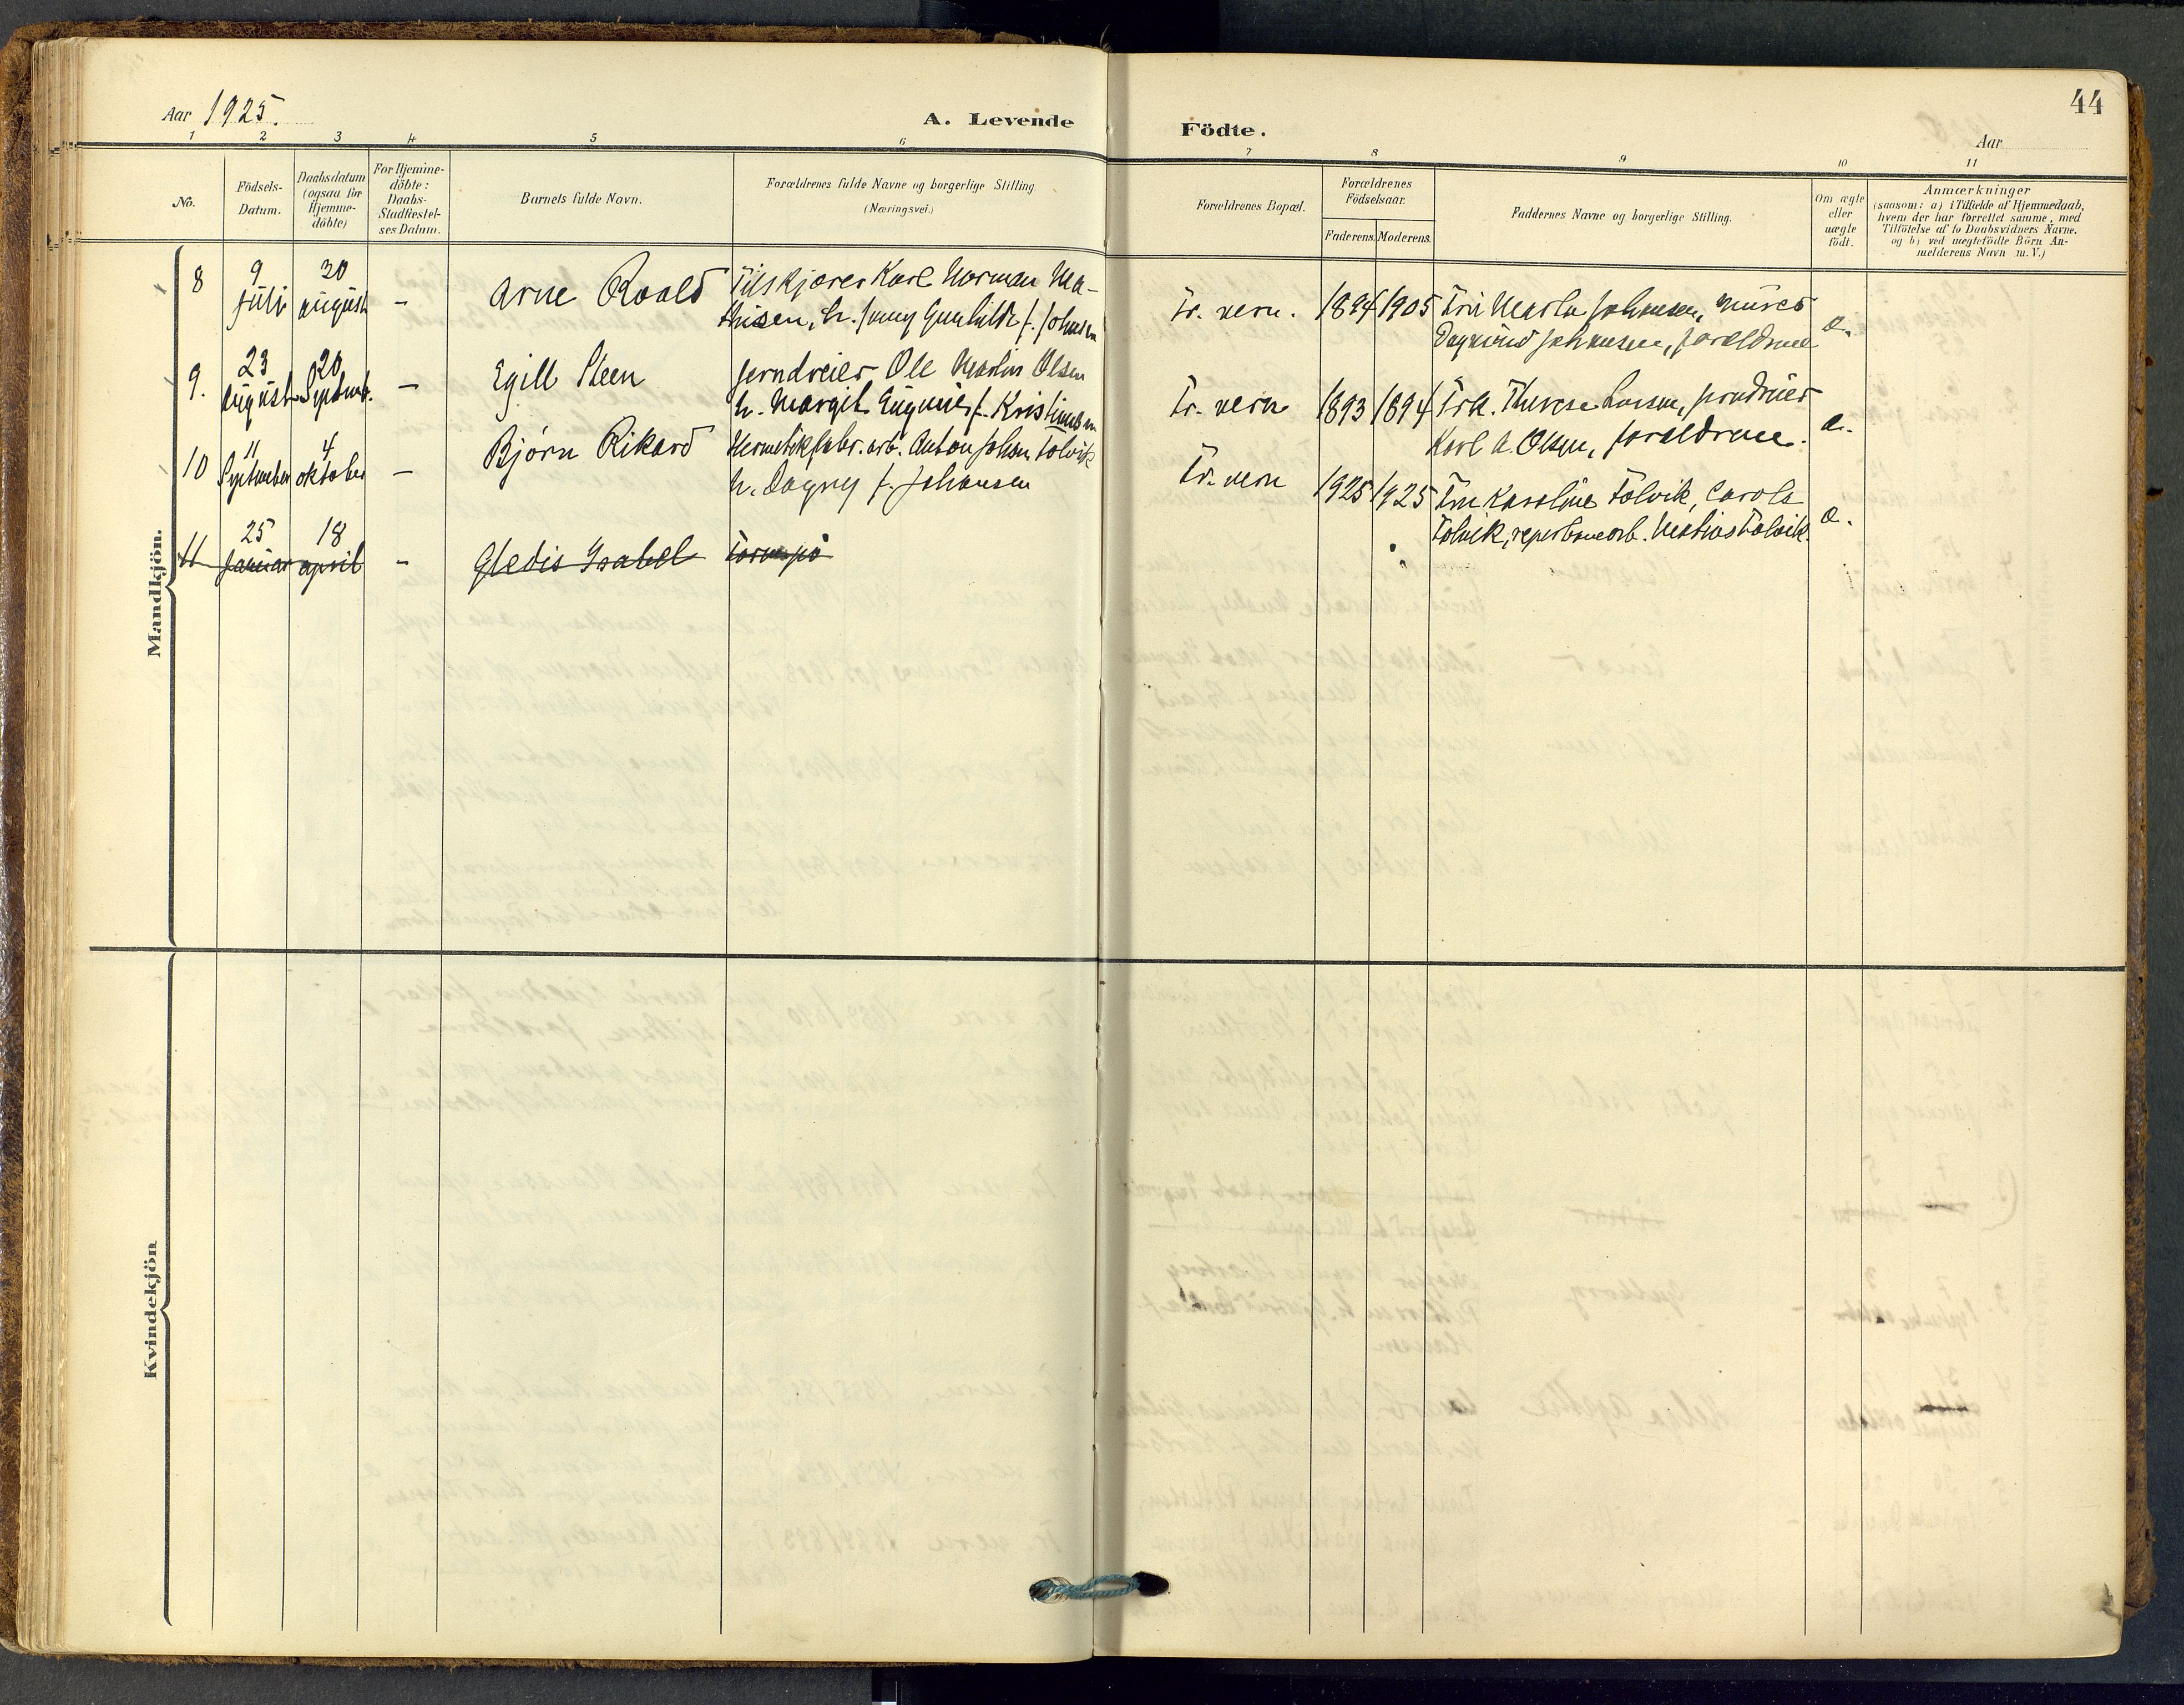 Aar 1925.
A. Levende
Födte.
Aar
44
1 2 3 4 5 6 7 8 9 10 11
No.
Födsels-
Datum.
Daabsdatum
(ogsaa for
Hjemme-
döbte)
For Hjemme-
döbte:
Daabs-
Stadfæstel-
ses Datum.
Barnets fulde Navn.
Forældrenes fulde Navne og borgerlige Stilling.
(Næringsvei.)
Forældrenes Bopæl.
Forældrenes
Födselsaar.
Faderens. Moderens.
Faddernes Navne og borgerlige Stilling.
Om ægte
eller
uægte
födt.
Anmærkninger
(saasom: a) i Tilfælde af Hjemmedaab,
hvem der har forrettet samme, med
Tilföielse af to Daabsvidners Navne,
og b) ved uægtefödte Börn An-
melderens Navn m. V.)
Mandkjön.
8
9
juli
20
august
-
Arne Roald
Tilskjærer Karl Norman Ma-
thisen, h. Jenny Gunhilde f. Johnsen
Fr. vern.
1894 1905
Fru Marta Johansen, murer
Dagmund Johansen, foreldrene
e.
9.
23
august
20
Septemb.
-
Egill Steen
jerndreier Ole Martin Olsen
h. Margit Eugenie f. Kristiansen
Fr. vern
1893 1894
Frk. Therese Larsen, jerndreier
Karl A. Olsen, foreldrene.
e.
10
11
September
4
oktober
-
Bjørn Rikard
Hermetikfabr. arb. Anton Johan Tolvik
h. Dagny f. Johansen
Fr. vern
1925 1925
Fru Karoline Tolvik, Carola
Tolvik, reperbanearb. Matias Tolvik.
e.
11
25
januar
18
april
-
Gledis Isabel
Kvindekjön